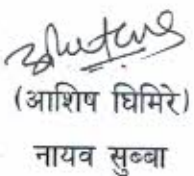 (आशिष घिमिरे)
नायव सुब्बा